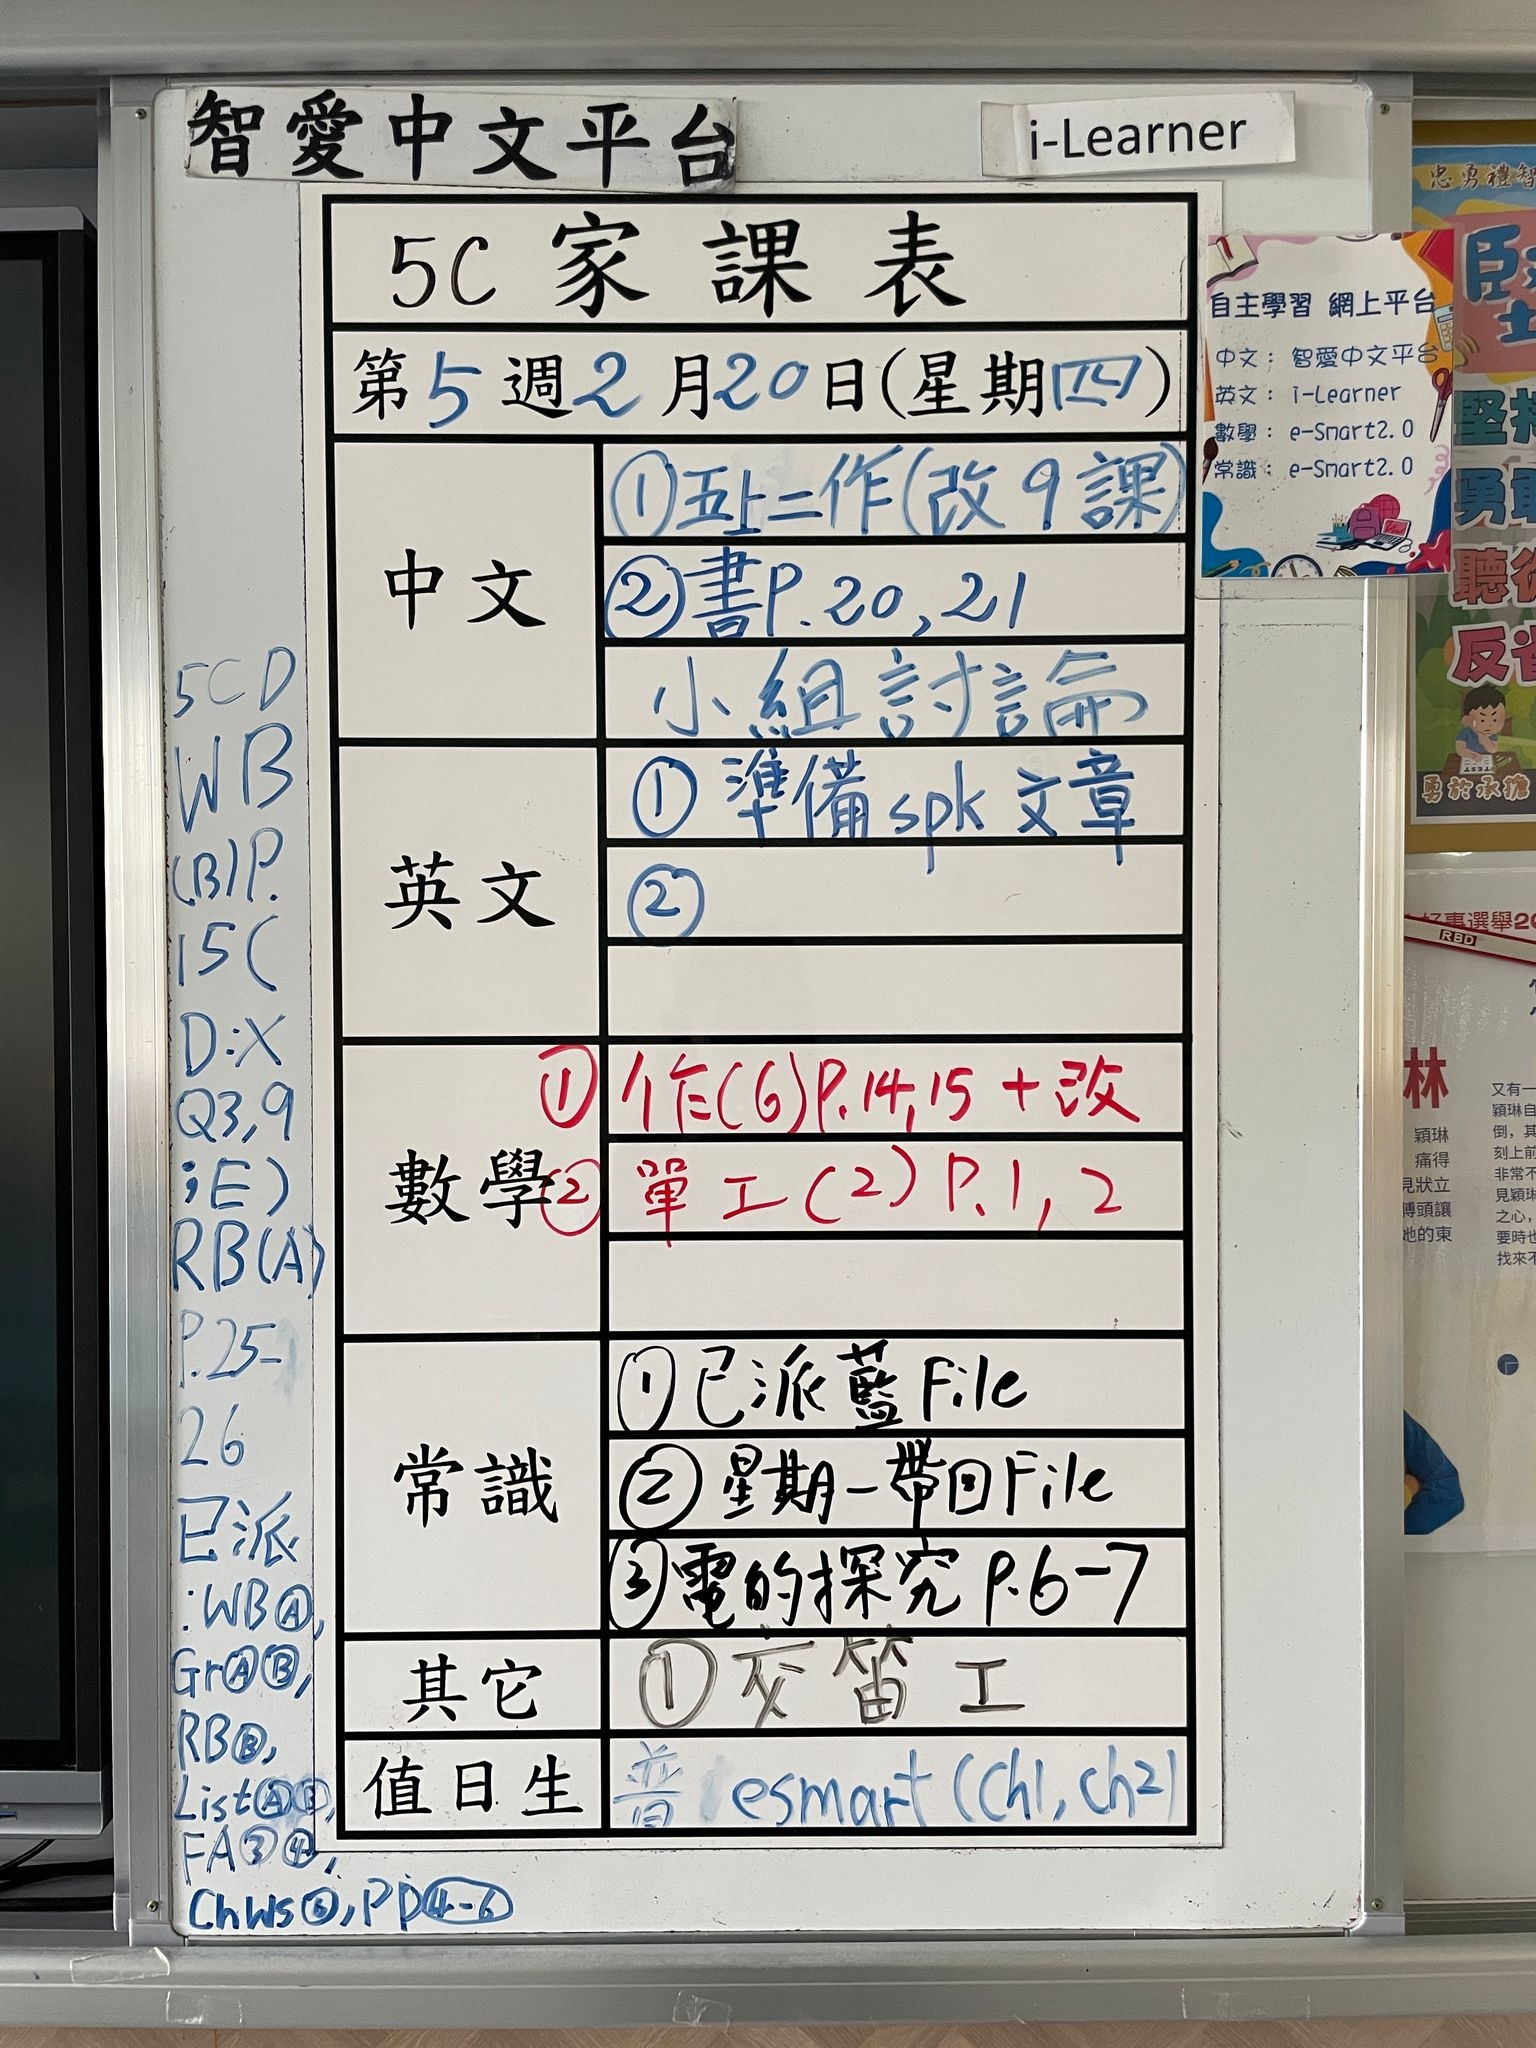 智愛中文平台
i-Learner
5C 家課表
第5週2月20日(星期四)
中文
①五上二作(改9課)
②書P.20,21
小組討論
英文
①準備spk文章
②
數學
①作(6)P.14,15+改
②單工(2)P.1,2
常識
①已派藍File
②星期一帶回File
③電的探究P.6-7
其它
①交笛工
值日生
普 esmart(Ch1,Ch2)
5CD
WB
(B)P.
15(
D:X
Q3,9
;E)
RB(A)
P.25-
26
已派
:WBⒶ,
GrⒶⒷ,
RBⒷ,
ListⒶⒷ,
FA③④,
ChWs⑤,PP④-6
自主學習 網上平台
中文: 智愛中文平台
英文: i-Learner
數學: e-Smart2.0
常識: e-Smart2.0
忠勇禮智
堅持
勇敢
聽從
反省
勇於承擔
好事選舉20
RBD
林
穎琳
痛得
見狀立
轉頭讓
她的東
又有一
穎琳自
倒,其
刻上前
非常不
見穎琳
之心,
要時也
找來不